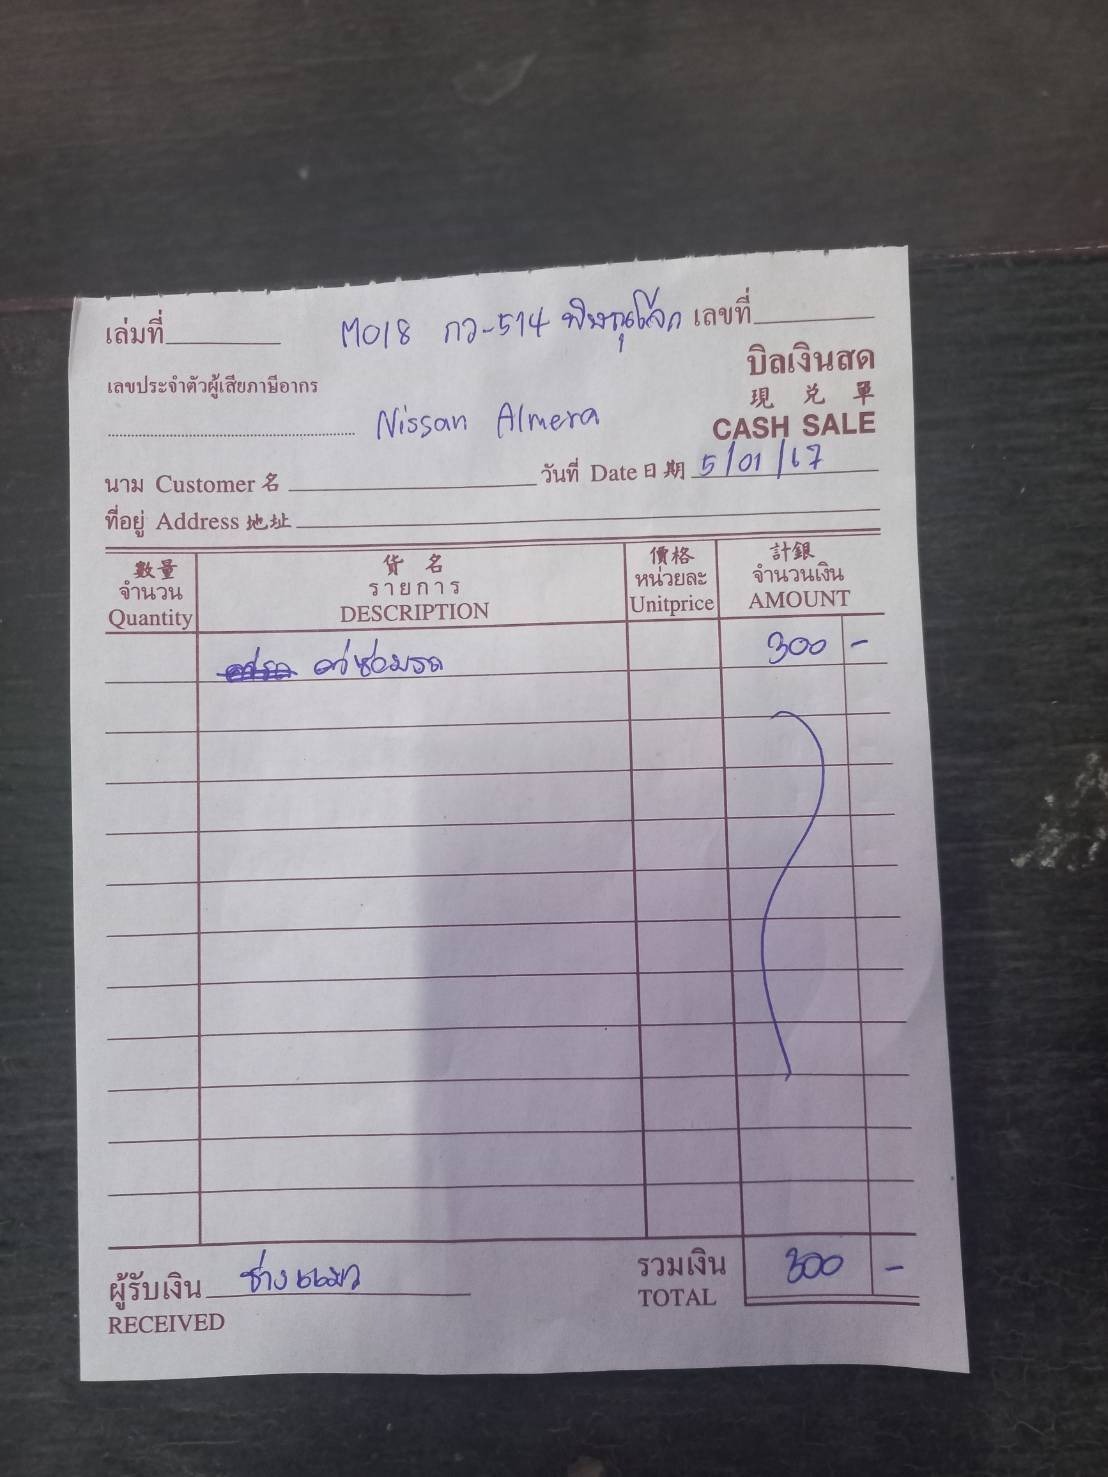 เล่มที่ M018 กว-514 พิษณุโลก เลขที่
บิลเงินสด
เลขประจำตัวผู้เสียภาษีอากร
現 兌 單
Nissan Almera CASH SALE
นาม Customer 名 วันที่ Date 日期 5/01/67
ที่อยู่ Address 地址
數量 貨名 價格 計銀
จำนวน รายการ หน่วยละ จำนวนเงิน
Quantity DESCRIPTION Unitprice AMOUNT
ค่าซ่อมรถ 300 -
ผู้รับเงิน ช่างแมว รวมเงิน 300 -
RECEIVED TOTAL